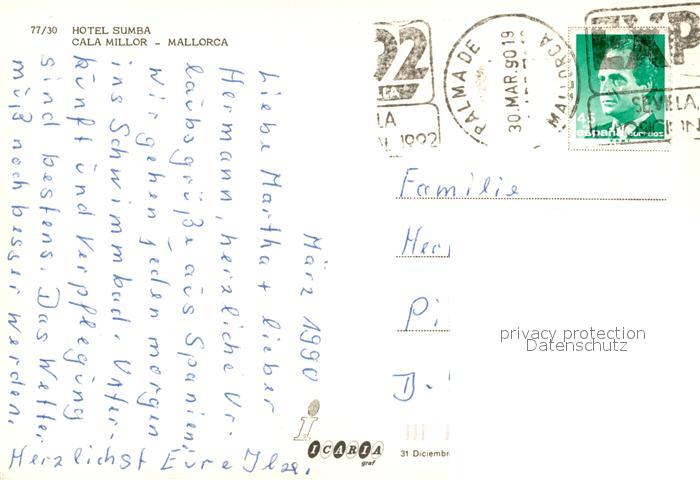 77/30 HOTEL SUMBA
CALA MILLOR - MALLORCA
März 1990
Liebe Martha + lieber
Hermann, herzliche Ur-
laubsgrüße aus Spanien.
Wir gehen jeden morgen
ins Schwimmbad. Unter-
künft und Verpflegung
sind bestens. Das Wetter
müß noch besser werden.
Herzlichst Eure Ilse.
ICARIA
graf
92
LA
1992
PALMA DE
30.MAR.90 19
MALLORCA
EXP
SEVILLA
45
españa correos
Familie
Her
Pi
D-
privacy protection
Datenschutz
31 Diciembr